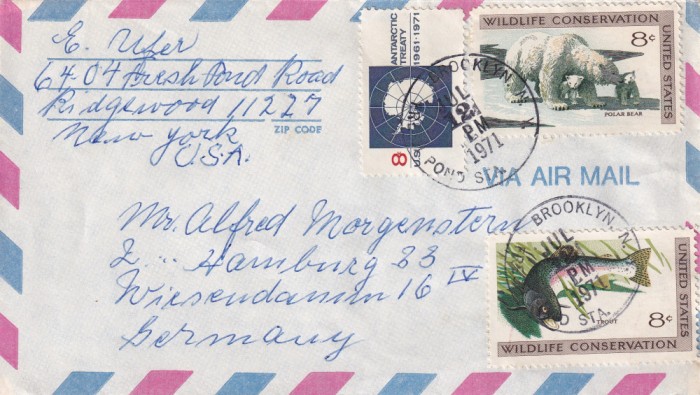 E. Ufer
6404 Fresh Pond Road
Ridgewood 11227
ZIP CODE
New York
U.S.A.
ANTARCTIC
TREATY 1961-1971
8
US
WILDLIFE CONSERVATION
8¢
UNITED STATES
POLAR BEAR
BROOKLYN, N.Y.
JUL
12
PM
1971
POND STA.
VIA AIR MAIL
Mr. Alfred Morgenstern
2 ... Hamburg 33
Wiesendamm 16 IV
Germany
BROOKLYN, N.
JUL
PM
1971
D STA.
TROUT
8¢
UNITED STATES
WILDLIFE CONSERVATION